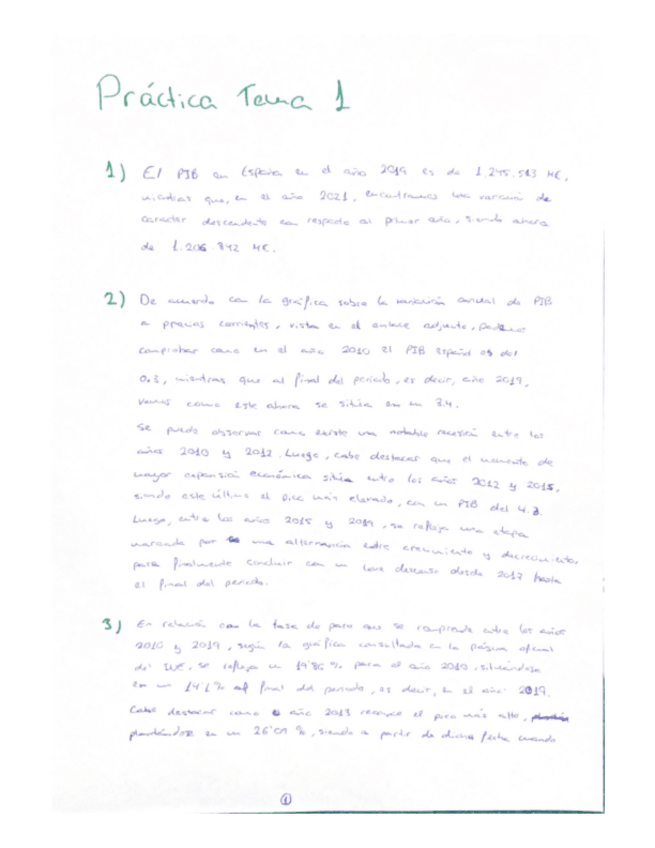 Práctica Tema 1
1) El PIB en España en el año 2019 es de 1.245.513 M€,
mientras que, en el año 2021, encontramos una variación de
caracter descendente con respecto al primer año, siendo ahora
de 1.206.842 M€.
2) De acuerdo con la gráfica sobre la variación anual de PIB
a precios corrientes, vista en el enlace adjunto, podemos
comprobar como en el año 2010 el PIB español es del
0.3, mientras que al final del periodo, es decir, año 2019,
vemos como este ahora se sitúa en un 3.4.
Se puede observar como existe una notable recesión entre los
años 2010 y 2012. Luego, cabe destacar que el momento de
mayor expansión económica sitúa entre los años 2012 y 2015,
siendo este último el pico más elevado, con un PIB del 4.
Luego, entre los años 2015 y 2019, se refleja una etapa
marcada por una alternancia entre crecimiento y decrecimiento,
para finalmente concluir con un leve descenso desde 2017 hasta
el final del periodo.
3) En relación con la tasa de paro que se comprende entre los años
2010 y 2019, según la gráfica consultada en la página oficial
del INE, se refleja un 19'86 % para el año 2010, situándose
en un 14'1 % al final del periodo, es decir, en el año 2019.
Cabe destacar como el año 2013 recoge el pico más alto,
plantándose en un 26'09 %, siendo a partir de dicha fecha cuando
1